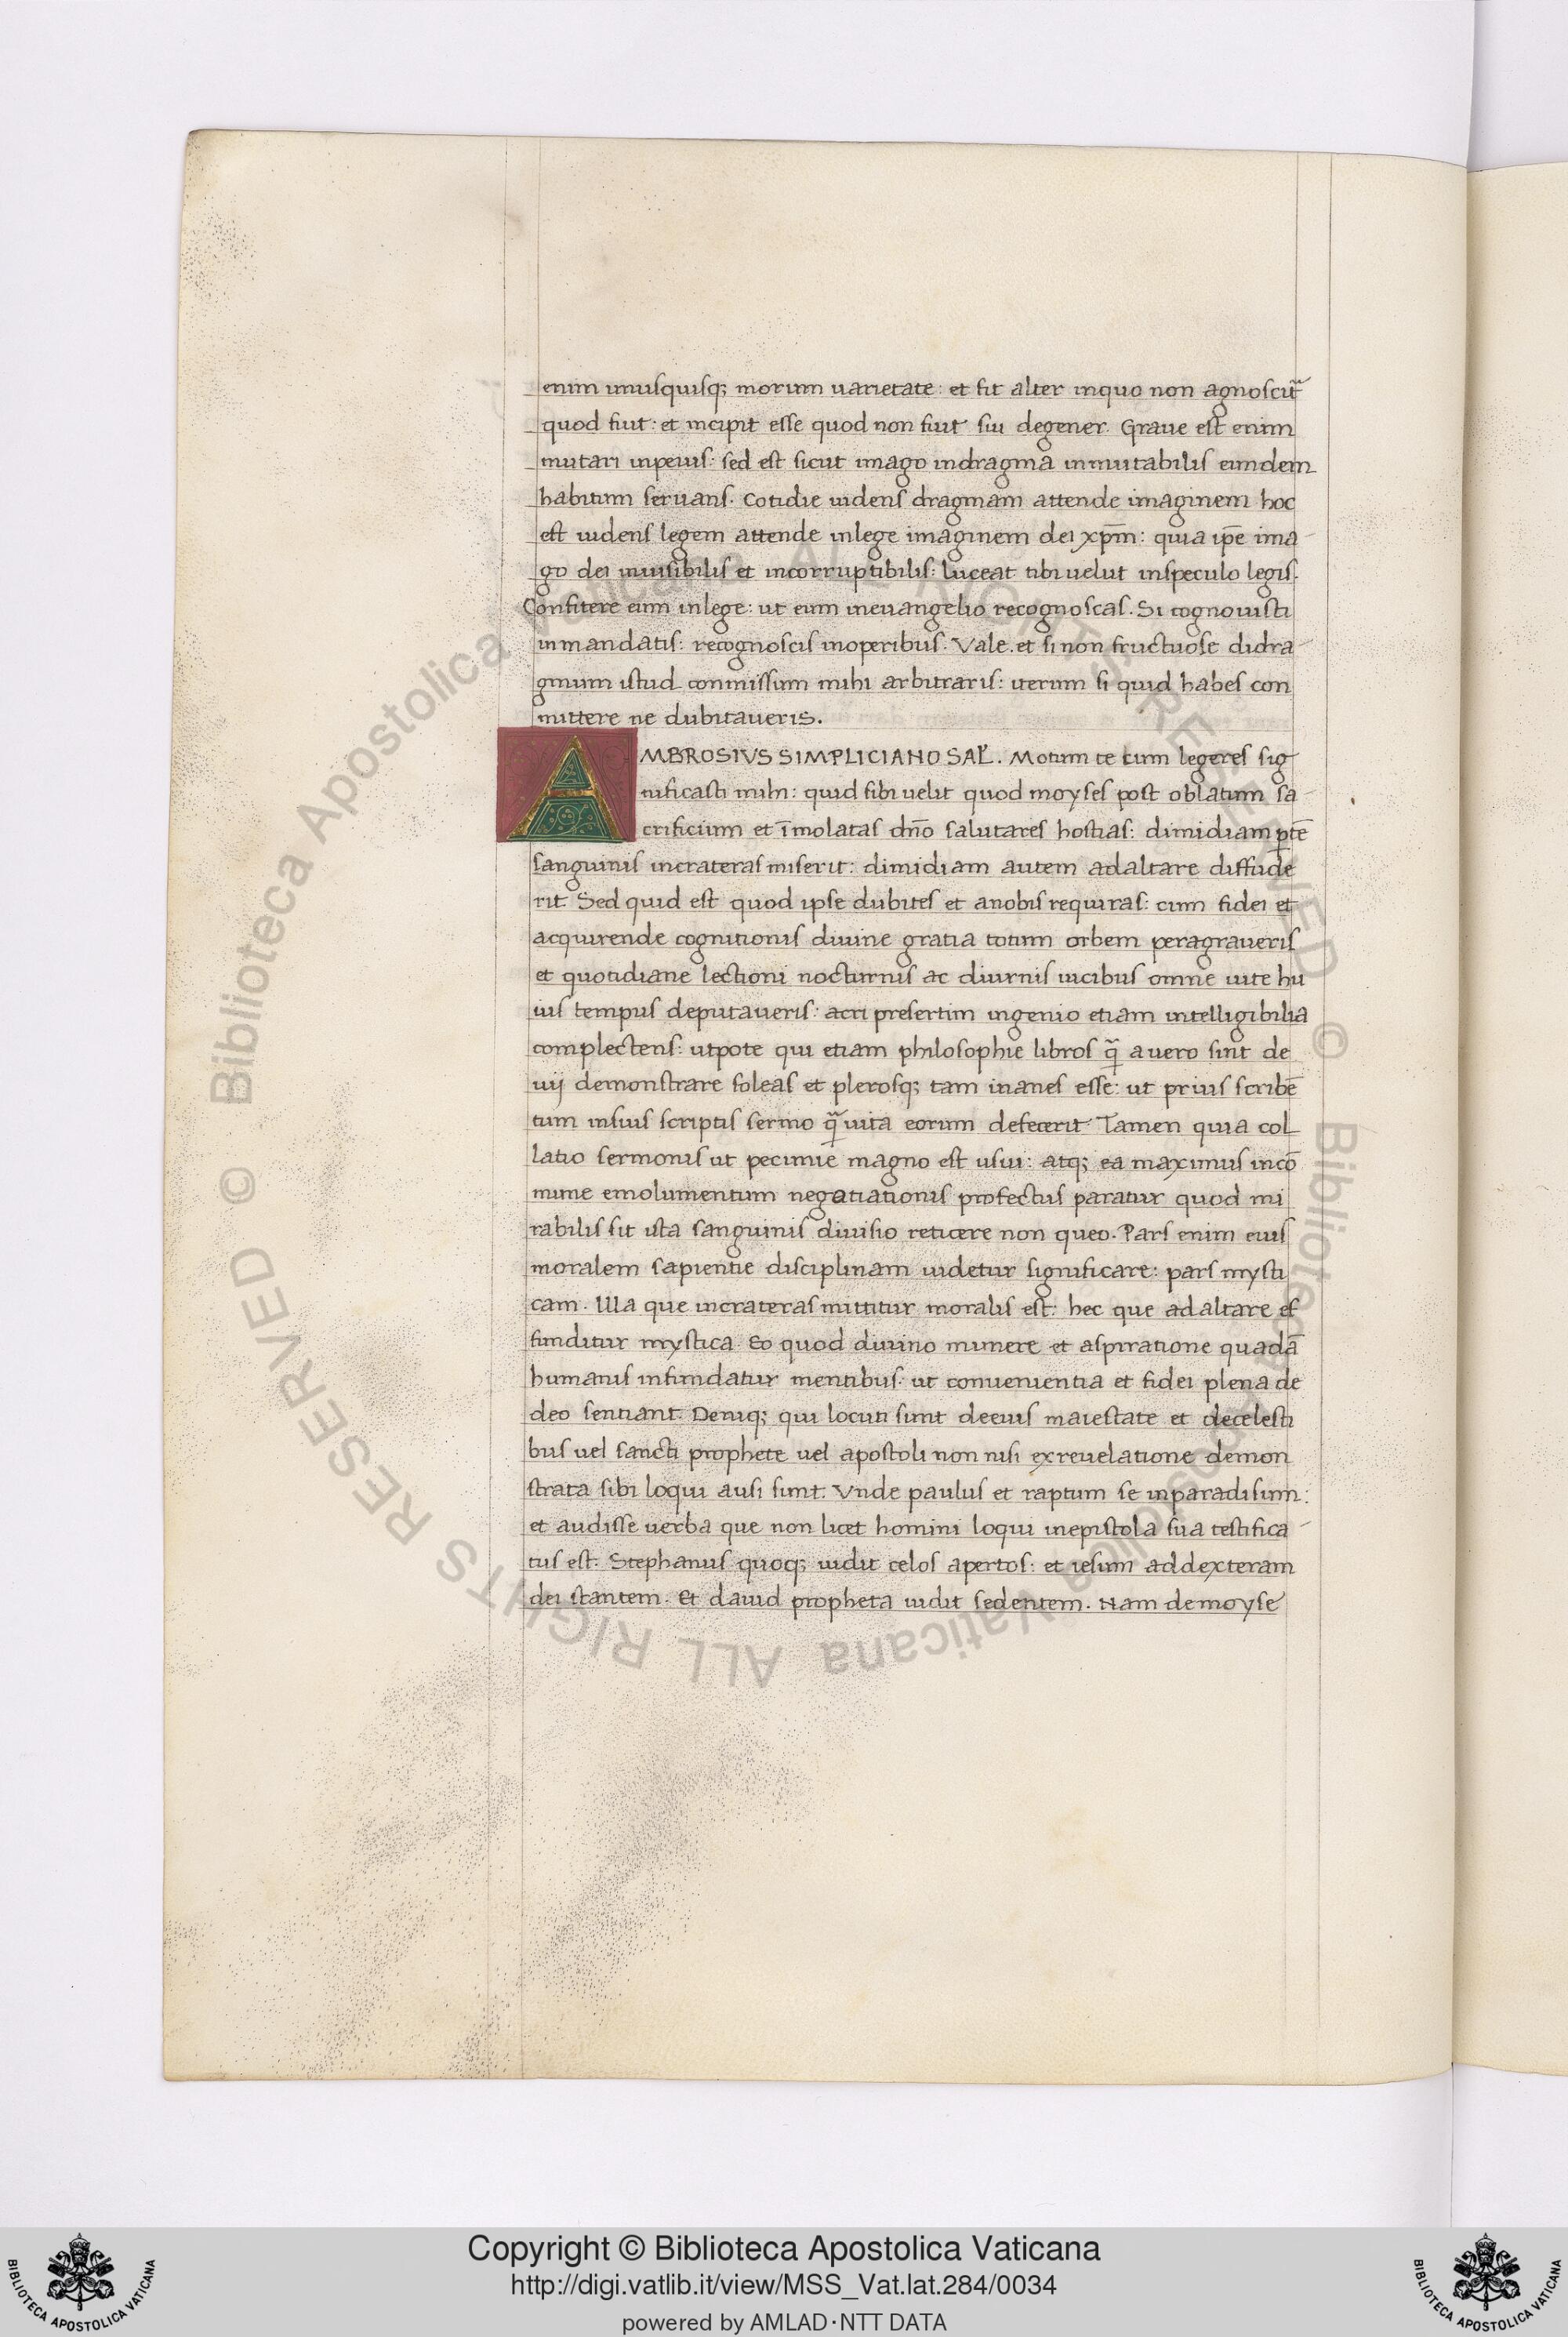 enim unusquisq; morum uarietate: et fit alter inquo non agnoscit᷑
quod fuit: et incipit esse quod non fuit sui degener. Graue est enim
mutari inpeius: sed est sicut imago indragma inmutabilis eundem
habitum seruans. Cotidie uidens dragmam attende imaginem hoc
est uidens legem attende inlege imaginem dei xp̄m: quia ip̄e ima
go dei inuisibilis et incorruptibilis: luceat tibi uelut inspeculo legis.
Confitere eum inlege: ut eum ineuangelio recognoscas. Si cognouisti
inmandatis: recognoscis inoperibus. Vale. et si non fructuose didra
gmum istud commissum mihi arbitraris: iterum si quid habes con
mittere ne dubitaueris.
AMBROSIVS SIMPLICIANO SAL̄. Motum te cum legeres sig
nificasti mihi: quid sibi uelit quod moyses post oblatum sa
crificium et īmolatas dn̄o salutares hostias: dimidiam ꝑtē
sanguinis incrateras miserit: dimidiam autem adaltare diffude
rit Sed quid est quod ipse dubites et anobis requiras: cum fidei et
acquirende cognitionis diuine gratia totum orbem peragraueris
et quotidiane lectioni nocturnis ac diurnis uicibus omne uite hu
ius tempus deputaueris: acri presertim ingenio etiam intelligibilia
complectens: utpote qui etiam philosophie libros q̄ auero sint de
uij demonstrare soleas et plerosq; tam inanes esse: ut prius scribē
tum insuis scriptis sermo q̄ uita eorum defecerit Tamen quia col
latio sermonis ut pecunie magno est usui: atq; ea maximus incō
mune emolumentum negatiationis profectus paratur quod mi
rabilis sit ista sanguinis diuisio reticere non queo. Pars enim eius
moralem sapientie disciplinam uidetur significare: pars mysti
cam. Illa que incrateras mittitur moralis est: hec que adaltare ef
funditur mystica. Eo quod diuino munere et aspiratione quadā
humanis infundatur mentibus: ut conuenientia et fidei plena de
deo sentiant. Deniq; qui locuti sunt deeius maiestate et decelesti
bus uel sancti prophete uel apostoli non nisi exreuelatione demon
strata sibi loqui ausi sunt. Vnde paulus et raptum se inparadisum:
et audisse uerba que non licet homini loqui inepistola sua testifica
tus est. Stephanus quoq; uidit celos apertos: et iesum addexteram
dei stantem. Et dauid propheta uidit sedentem. Nam demoyse
© Biblioteca Apostolica Vaticana ALL RIGHTS RESERVED
© Biblioteca Apostolica Vaticana ALL RIGHTS RESERVED
Copyright © Biblioteca Apostolica Vaticana
http://digi.vatlib.it/view/MSS_Vat.lat.284/0034
powered by AMLAD·NTT DATA
BIBLIOTECA APOSTOLICA VATICANA
BIBLIOTECA APOSTOLICA VATICANA